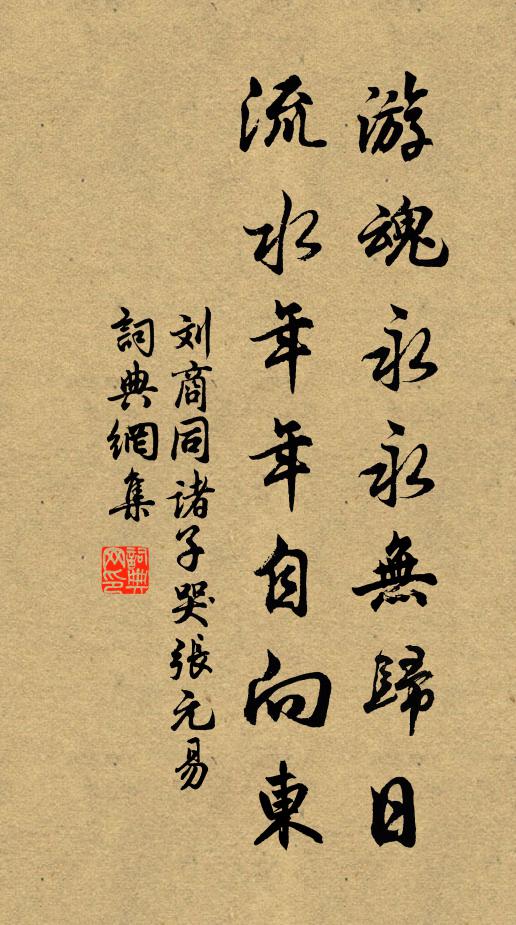 游魂永永無歸日
流水年年自向東
刘商同諸子哭張元易
詞典網集
詞典網印